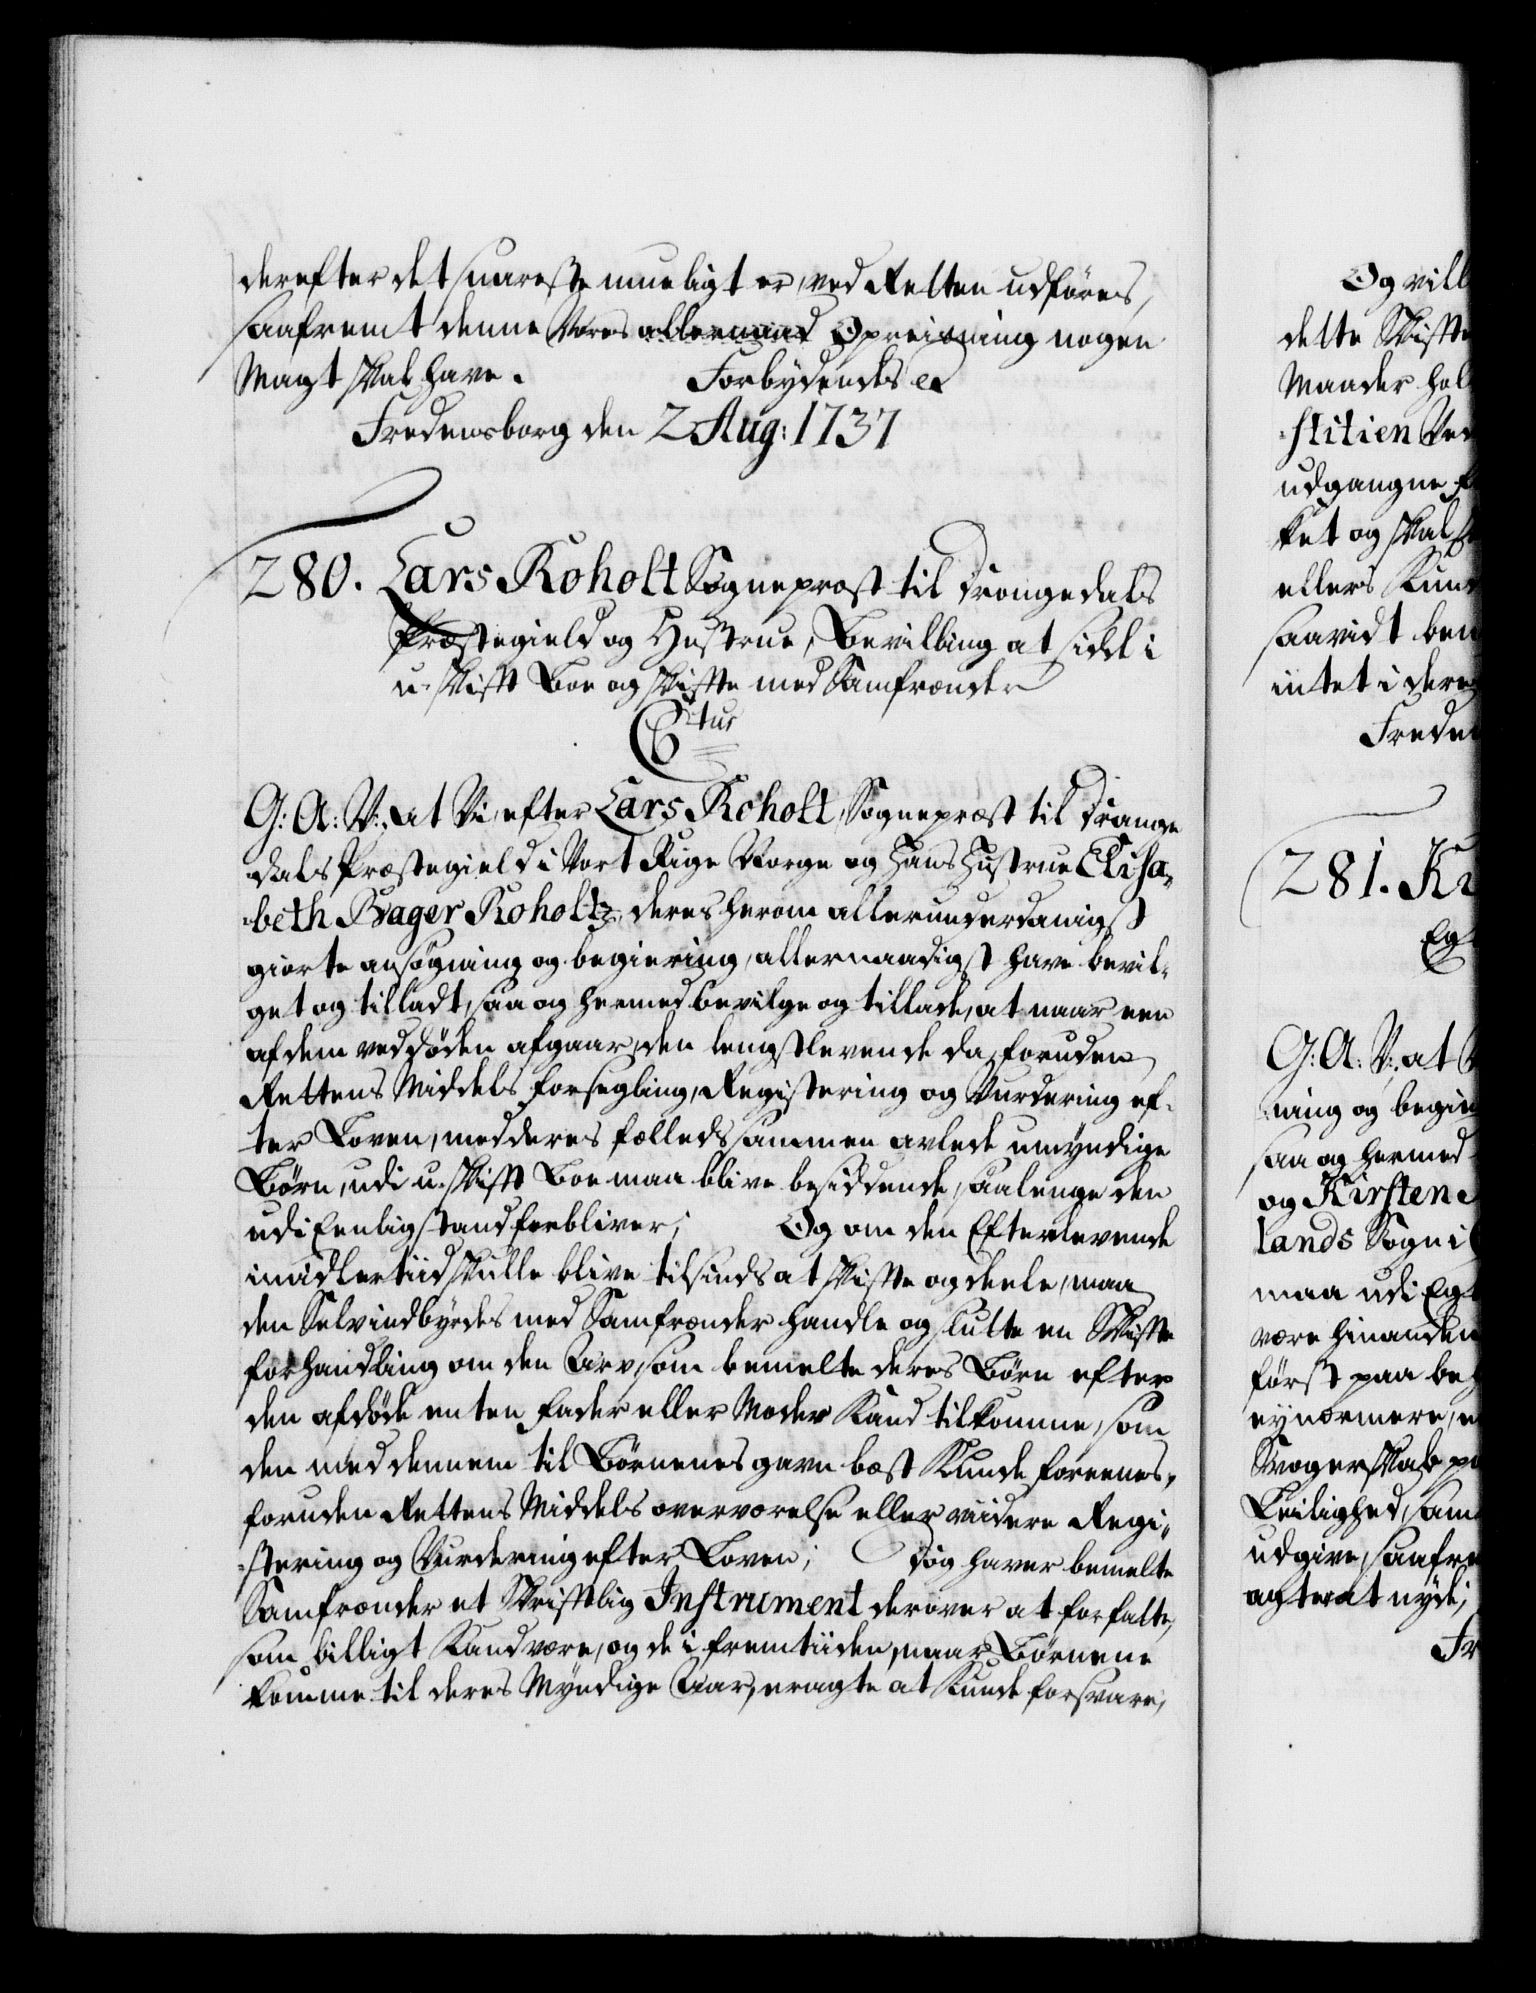 derefter det snareste mueligt er, ved Retten udføres,
saafremt denne Vores allernaad Opreisning nogen
Magt skal have. Forbydendes &
Fredensborg den 2 Aug: 1737
280. Lars Roholt Sognepræst til Drangedals
Præstegield og Hustrue, Bevilling at sidde i
u-skift Boe og skifte med Samfrænder
G: A: V:, at Vi, efter Lars Roholt, Sognepræst til Drange
dals Præstegield i Vort Rige Norge og Hans Hustrue Elisa-
beth Brager Roholtz, deres herom allerunderdanigst
giorte ansøgning og begiering, allernaadigst have bevil-
get og tilladt, saa og hermed bevilge og tillade, at naar een
af dem ved døden afgaar, den lengstlevende da, foruden
Rettens Middels forsegling, Registering og Vurdering ef-
ter Loven, med deres fælleds sammen avlede umyndige
Børn, udi u-skift Boe maa blive besiddende, saalenge den
udi Eenlig stand forbliver; Og om den Efterlevende
imidlertiid skulle blive tilsinds at skifte og deele, maa
den Selv indbyrdes med Samfrænder handle og slutte en Skifte
forhandling om den Arv, som bemelte deres Børn efter
den afdøde enten Fader eller Moder Kand tilkomme, som
den med dennem til Børnenes gavn bæst Kunde foreenes,
foruden Rettens Middels overværelse eller viidere Regi-
stering og Vurdering efter Loven; Dog haver bemelte
Samfrænder et Skriftlig Instrument derover at forfatte,
som billigt Kand være, og de i fremtiiden, naar Børnene
komme til deres Myndige Aar, eragte at Kunde forsvare,
Og vill
dette Skifte
Maader hol
stitien Ved
udgangne F
ket og skal
ellers Kun
saavidt bem
intet i dere
Freden
281. Ki
Eg
G: A: V:, at V
ning og begie
saa og hermed
og Kirsten
lands Sogn i
maa udi Egt
være hinanden
først paa be
ey nærmere, e
Svogerskab pa
Leilighed, sam
udgive, saafre
agter at nyde;
Fr